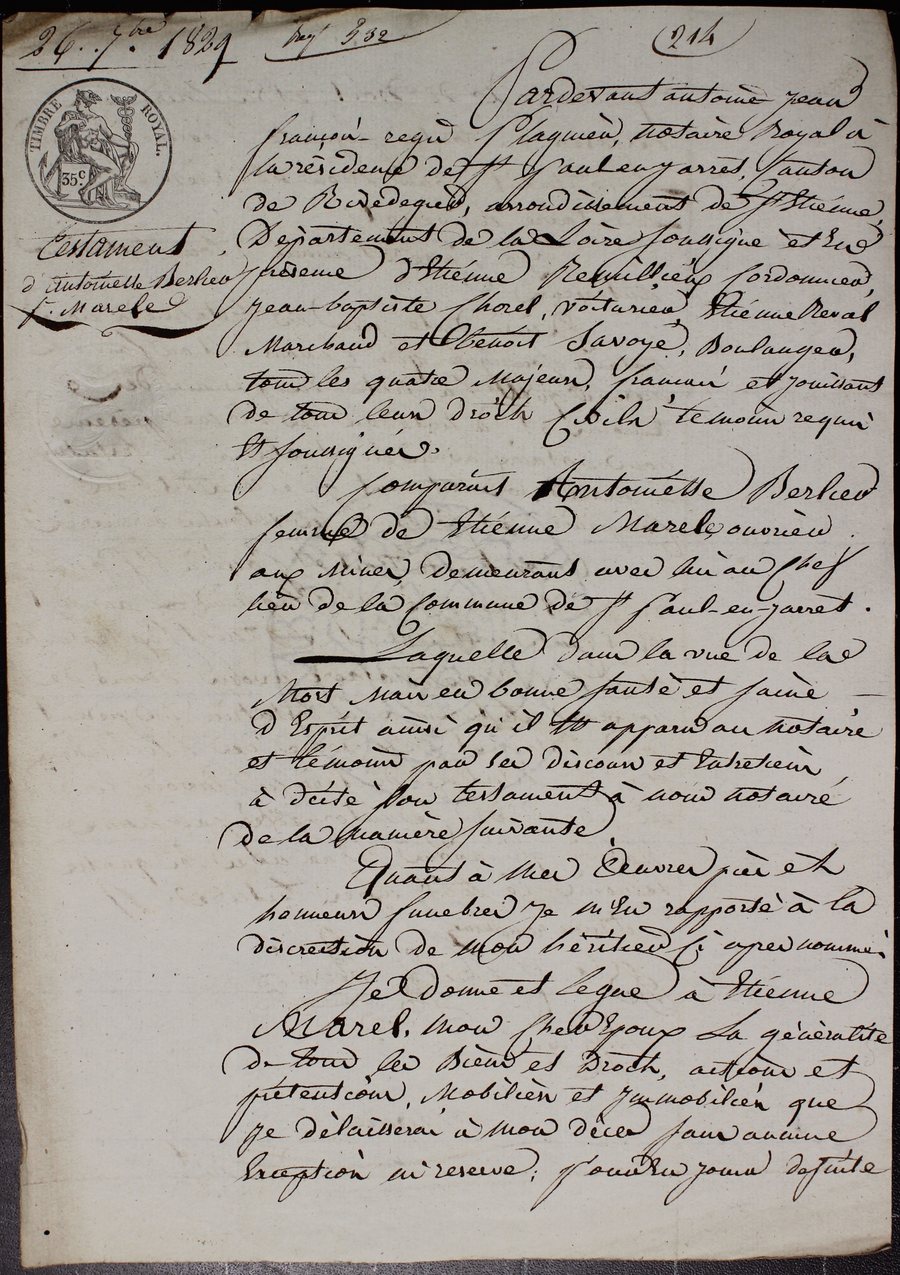 26. 7bre. 1829
214
TIMBRE ROYAL.
35 c.
Testament
d'antoinette Berlien
f. Marel
Pardevant antoine jean
françois regis Plagnieu, notaire Royal à
la résidence de St paul en jarrès, Canton
de Rivedegier, arrondissement de St Etiénne,
Département de la Loire soussigné et En
présence d'Etiénne Remillieux Cordonnier,
jean-baptiste Chorel, voiturier, Etiénne Reval
Marchand et Bénoit Savoyé, Boulanger,
tous les quatre Majeurs, français et jouissant
de tous leurs droits Civils, temoins requis
Et soussignés.
Comparait Antoinétte Berlien
femme de Etiénne Marel, ouvrier
aux Mines, demeurant avec lui au Chef
lieu de la Commune de St paul-en-jarret.
Laquelle dans la vue de la
Mort Mais en bonne santé et saine
d'Esprit ainsi qu'il Est apparu au notaire
et témoins par ses discours et Entretien
à dicté son testament à nous notaire
de la manière suivante
Quant à Mes Oeuvres pies et
honneurs funebres je m'En rapporte à la
discretion de mon héritier Ci apres nommé.
Je Donne et legue à Etiénne
Marel, mon Cher Epoux La généralité
de tous les Biens et Droits, actions et
prétentions, Mobiliers et jmmobiliers que
je délaisserai à mon décès sans aucune
Exception ni reserve; pour En jouir de suite